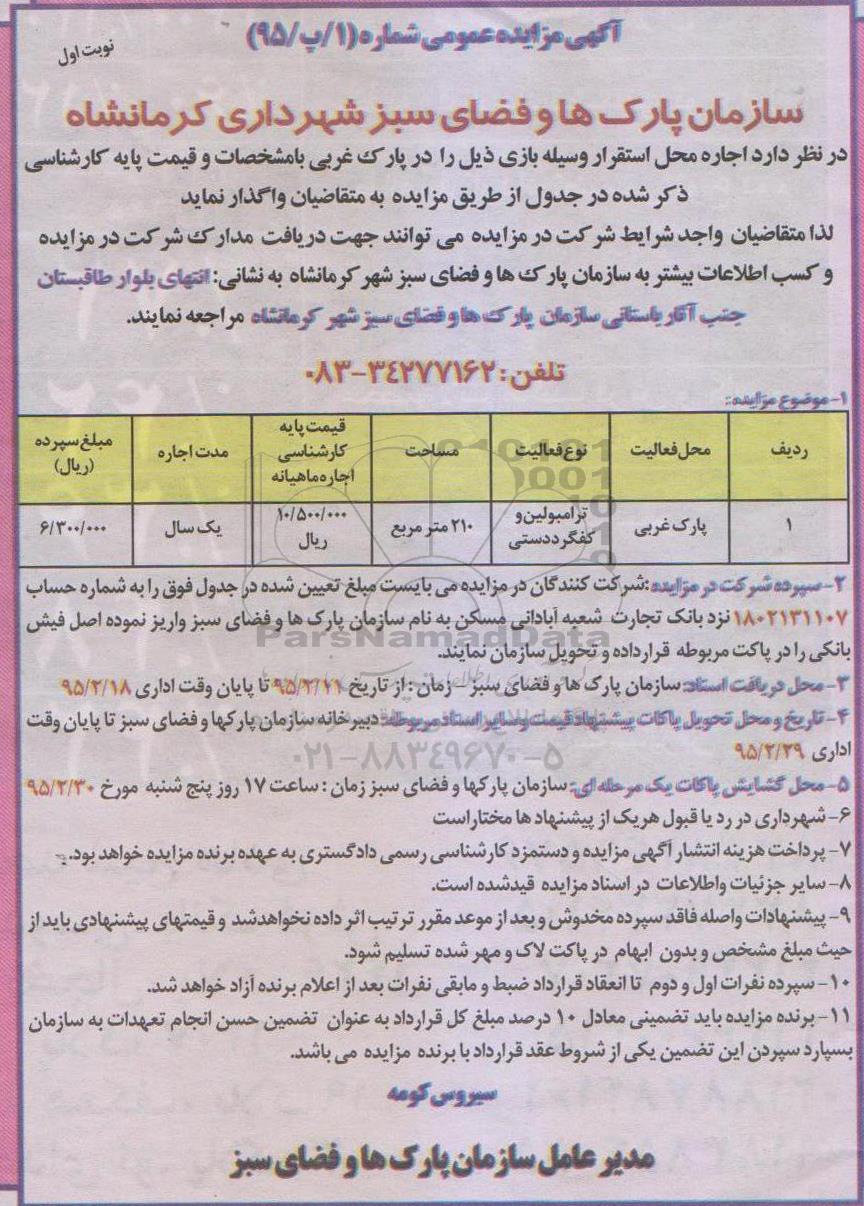 آگهی مزایده عمومی شماره (۱/پ/۹۵)
نوبت اول
سازمان پارک ها و فضای سبز شهرداری کرمانشاه
در نظر دارد اجاره محل استقرار وسیله بازی ذیل را در پارک غربی بامشخصات و قیمت پایه کارشناسی
ذکر شده در جدول از طریق مزایده به متقاضیان واگذار نماید
لذا متقاضیان واجد شرایط شرکت در مزایده می توانند جهت دریافت مدارک شرکت در مزایده
و کسب اطلاعات بیشتر به سازمان پارک ها و فضای سبز شهر کرمانشاه به نشانی: انتهای بلوار طاقبستان
جنب آثار باستانی سازمان پارک ها و فضای سبز شهر کرمانشاه مراجعه نمایند.
تلفن: ۳۴۲۷۷۱۶۲-۰۸۳
۱- موضوع مزایده:
ردیف محل فعالیت نوع فعالیت مساحت قیمت پایه کارشناسی اجاره ماهیانه مدت اجاره مبلغ سپرده (ریال)
۱ پارک غربی ترامبولین و کفگرد دستی ۲۱۰ متر مربع ۱۰/۵۰۰/۰۰۰ ریال یک سال ۶/۳۰۰/۰۰۰
۲- سپرده شرکت در مزایده: شرکت کنندگان در مزایده می بایست مبلغ تعیین شده در جدول فوق را به شماره حساب
۱۸۰۲۱۳۱۱۰۷ نزد بانک تجارت شعبه آبادانی مسکن به نام سازمان پارک ها و فضای سبز واریز نموده اصل فیش
بانکی را در پاکت مربوطه قرارداده و تحویل سازمان نمایند.
ParsNamadData
۳- محل دریافت اسناد: سازمان پارک ها و فضای سبز - زمان: از تاریخ ۹۵/۲/۱۱ تا پایان وقت اداری ۹۵/۲/۱۸
۴- تاریخ و محل تحویل پاکات پیشنهاد قیمت و سایر اسناد مربوطه: دبیرخانه سازمان پارکها و فضای سبز تا پایان وقت
اداری ۹۵/۲/۲۹
۰۲۱-۸۸۳۴۹۶۷۰-۵
۵- محل گشایش پاکات یک مرحله ای: سازمان پارکها و فضای سبز زمان: ساعت ۱۷ روز پنج شنبه مورخ ۹۵/۲/۳۰
۶- شهرداری در رد یا قبول هریک از پیشنهاد ها مختاراست
۷- پرداخت هزینه انتشار آگهی مزایده و دستمزد کارشناسی رسمی دادگستری به عهده برنده مزایده خواهد بود.
۸- سایر جزئیات واطلاعات در اسناد مزایده قیدشده است.
۹- پیشنهادات واصله فاقد سپرده مخدوش و بعد از موعد مقرر ترتیب اثر داده نخواهدشد و قیمتهای پیشنهادی باید از
حیث مبلغ مشخص و بدون ابهام در پاکت لاک و مهر شده تسلیم شود.
۱۰- سپرده نفرات اول و دوم تا انعقاد قرارداد ضبط و مابقی نفرات بعد از اعلام برنده آزاد خواهد شد.
۱۱- برنده مزایده باید تضمینی معادل ۱۰ درصد مبلغ کل قرارداد به عنوان تضمین حسن انجام تعهدات به سازمان
بسپارد سپردن این تضمین یکی از شروط عقد قرارداد با برنده مزایده می باشد.
سیروس کومه
مدیر عامل سازمان پارک ها و فضای سبز